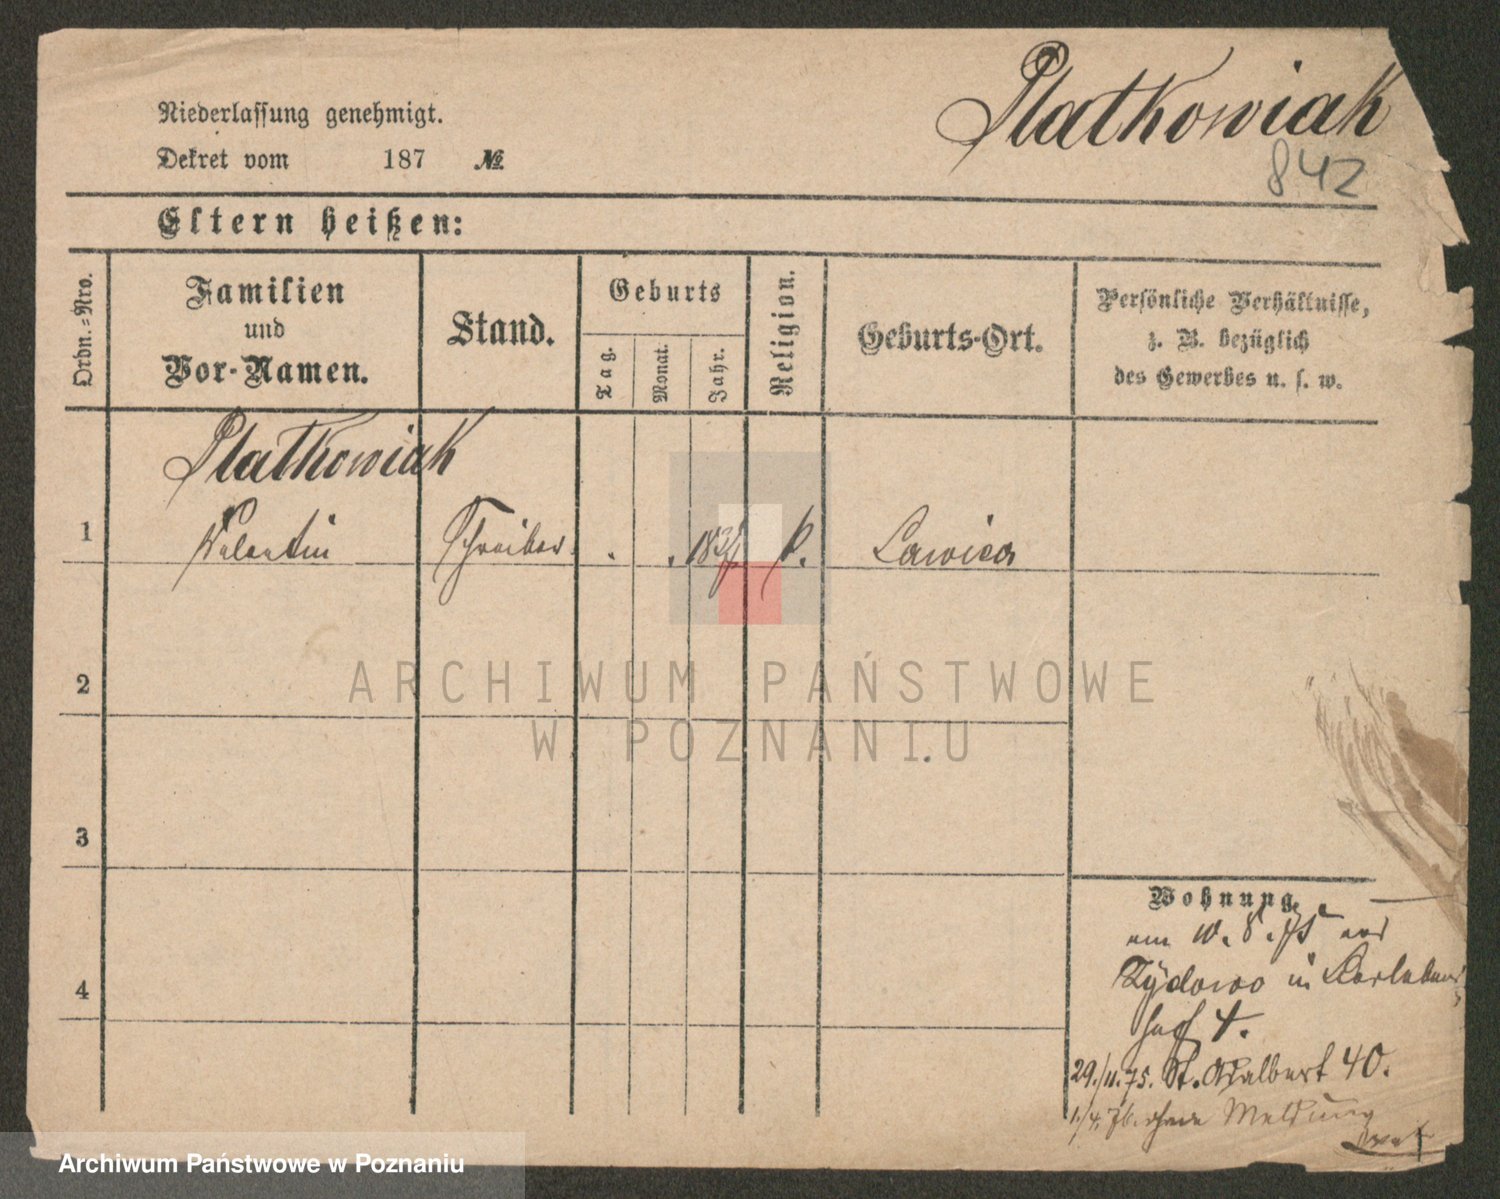 Platkowiak
842
Niederlassung genehmigt.
Dekret vom 187 №
Eltern heißen:
Ordn.=Nro.
Familien
und
Vor-Namen.
Stand.
Geburts
Tag.
Monat.
Jahr.
Religion.
Geburts-Ort.
Persönliche Verhältnisse,
z. B. bezüglich
des Gewerbes u. s. w.
Platkowiak
1 Valentin Schreiber . . k. Lawica
2
3
4
ARCHIWUM PAŃSTWOWE
W POZNANIU
Wohnung
am 10. 8. 75 aus
Zydowo in
hof 4.
29./11.75. St. Adalbert 40.
ohne Meldung
Archiwum Państwowe w Poznaniu